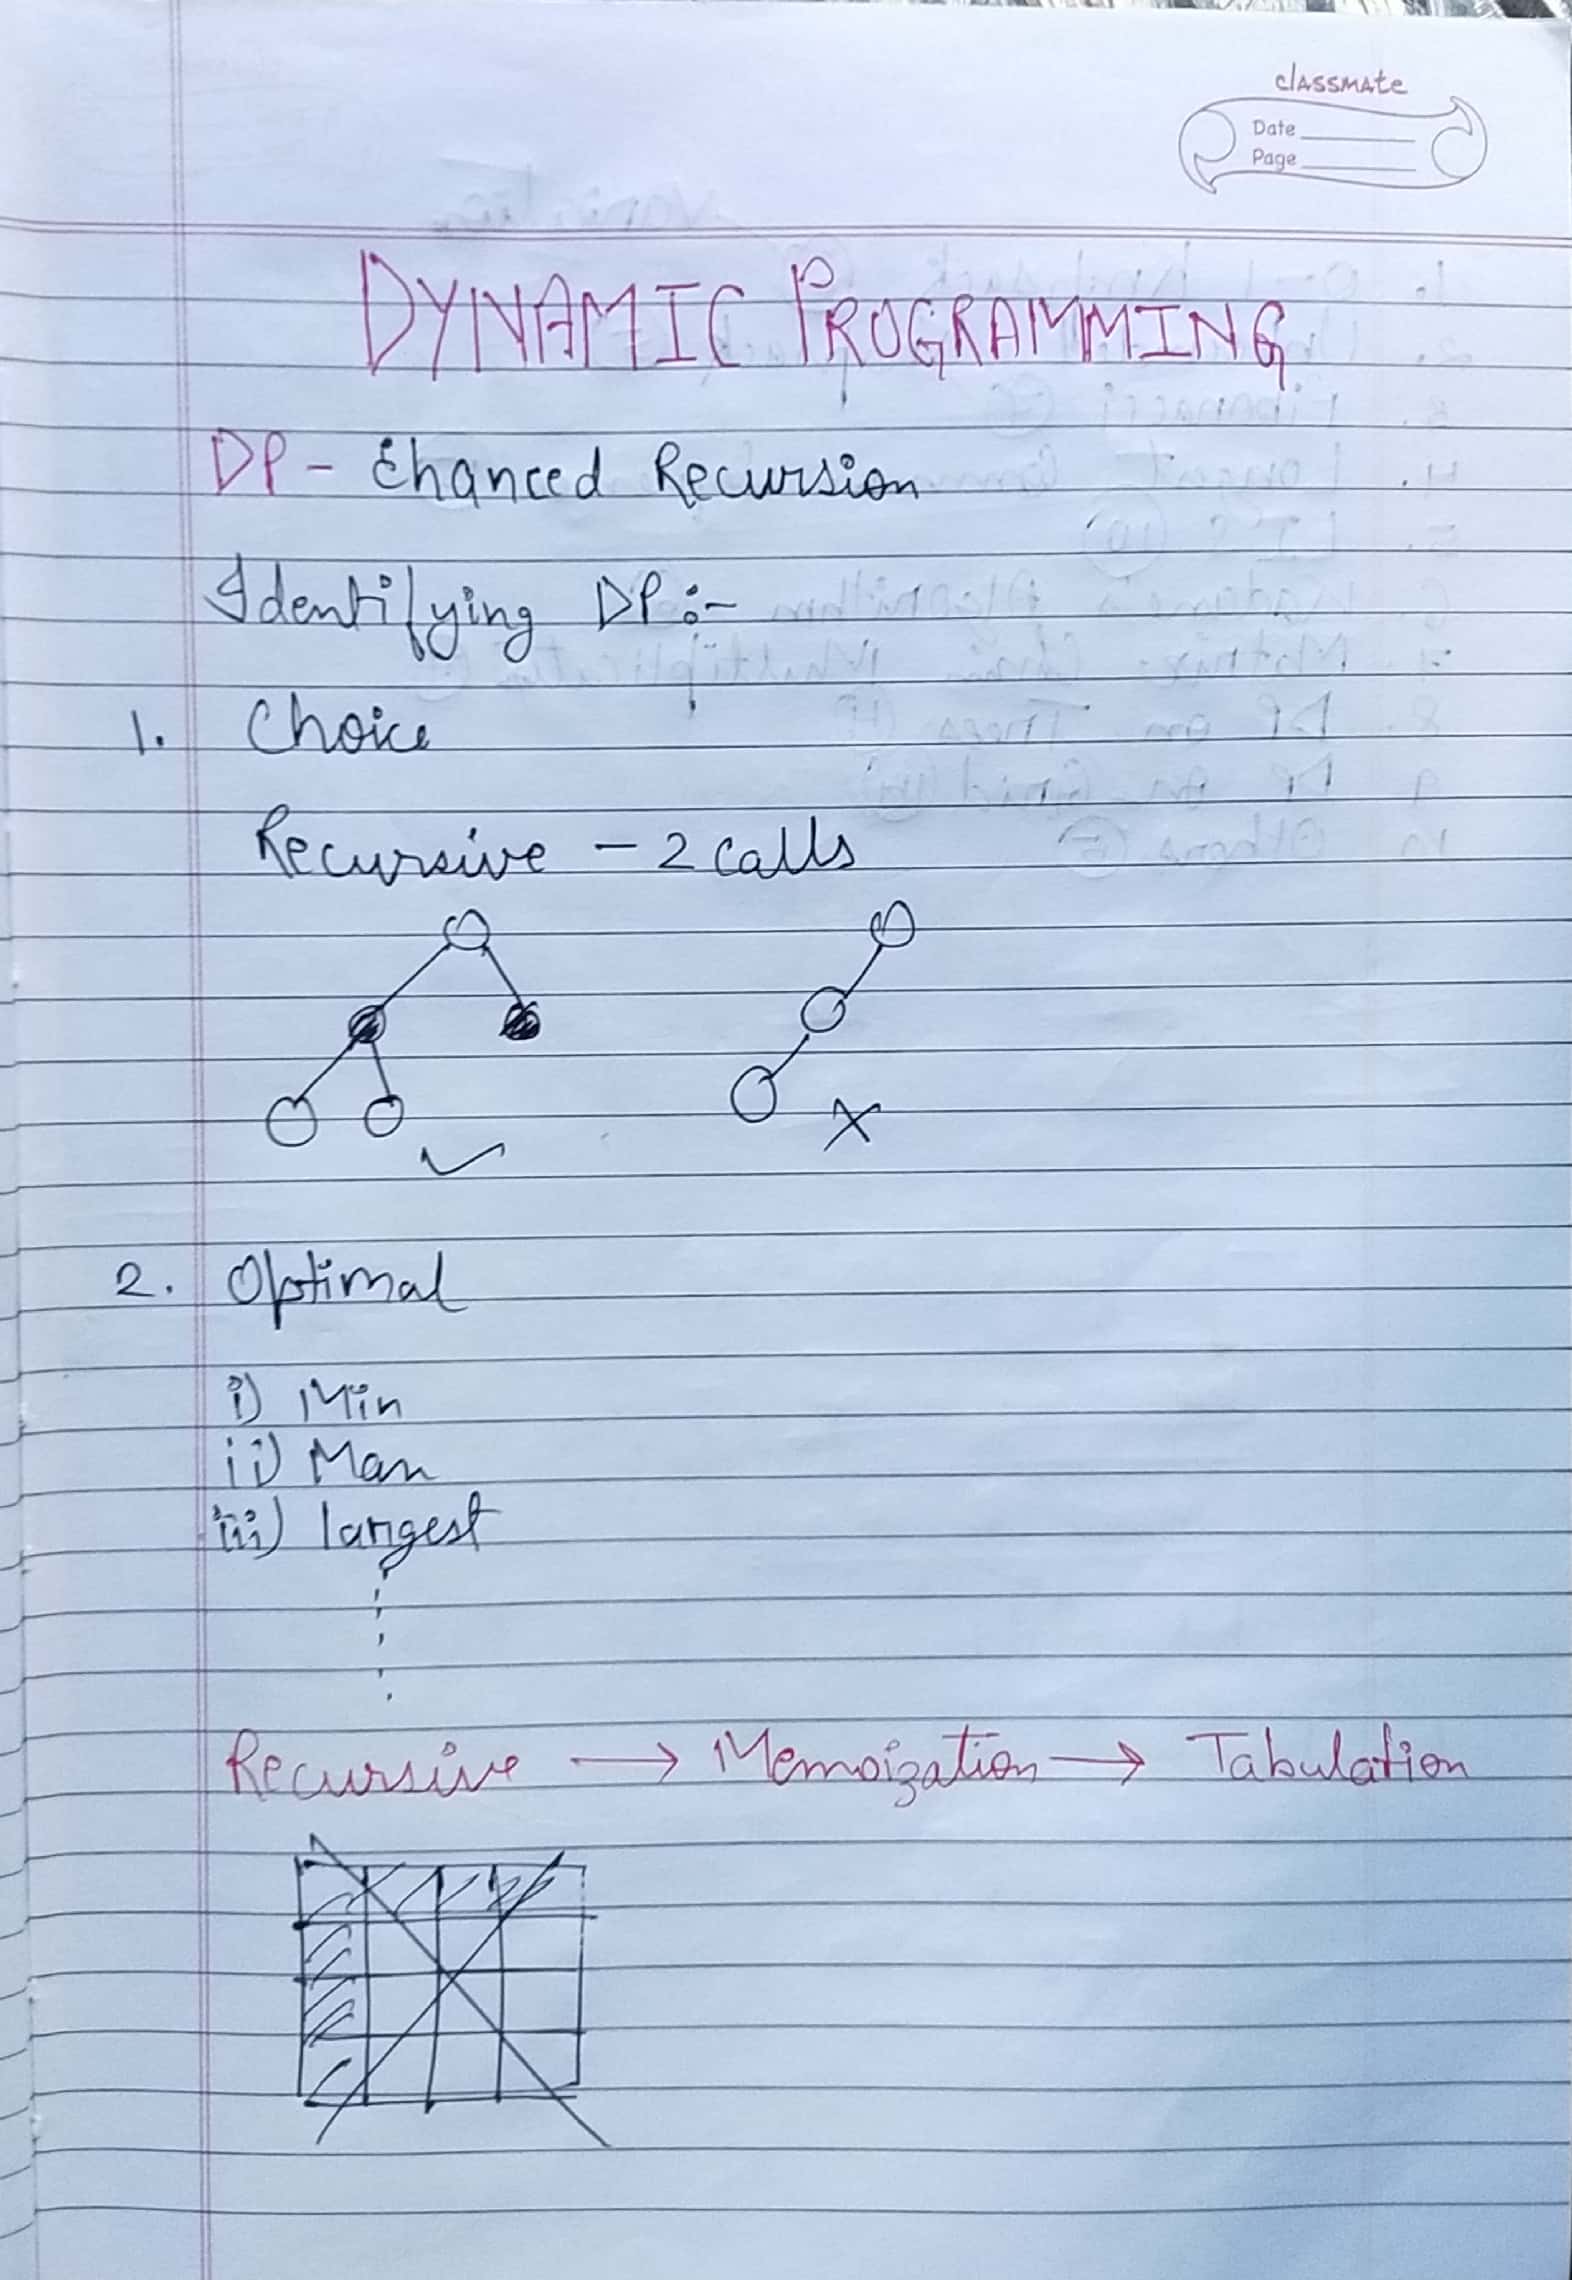 classmate
Date
Page
DYNAMIC PROGRAMMING
DP - Ehanced Recursion
Identifying DP:-
1. Choice
Recursive - 2 calls
2. Optimal
i) Min
ii) Max
iii) largest
Recursive → Memoization → Tabulation